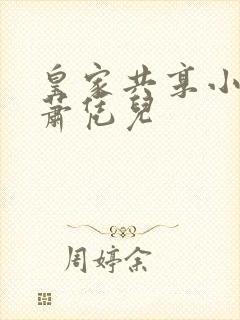 皇家共享小
萧恁儿
周婷余